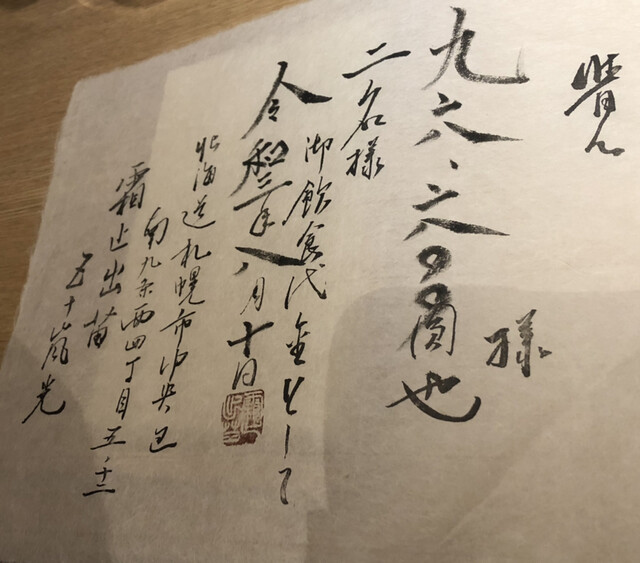 覚え
様
九六、六〇〇圓也
二名様
御飲食代金として
令和三年八月十日
北海道札幌市中央区
南九条西四丁目五ノ十二
霜止出苗
五十嵐光